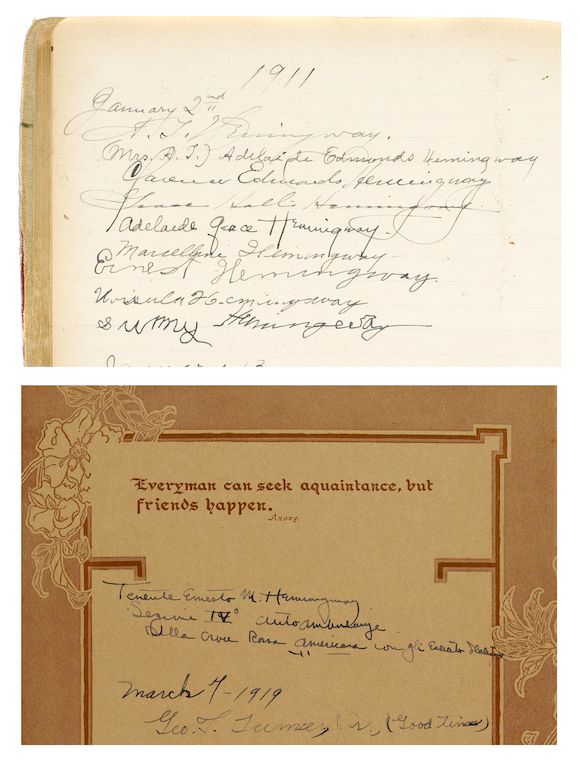 1911
January 2nd
A. T. Hemingway.
(Mrs. A. T.) Adelaide Edmonds Hemingway
Clarence Edmonds Hemingway
Grace Hall Hemingway.
Adelaide Grace Hemingway.
Marcelline Hemingway
Ernest Hemingway.
Ursula Hemingway
Sunny Hemingway
Everyman can seek aquaintance, but
friends happen.
Anong.
Tenente Ernesto M. Hemingway
IV° Autoambulanze
Della Croce Rossa Americana con gli
March 7-1919
Geo. T. (Good Times)